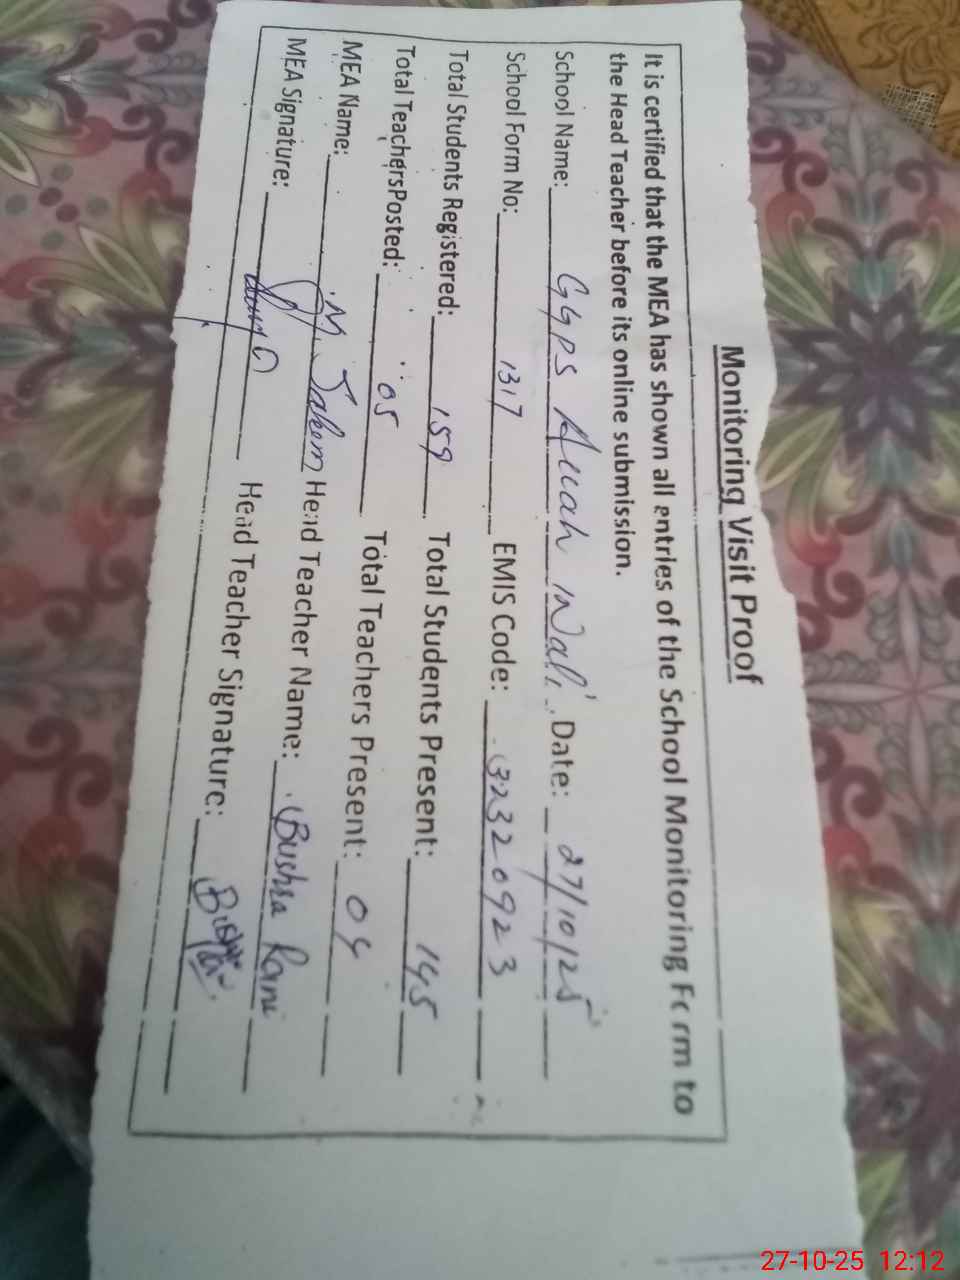 Monitoring Visit Proof
It is certified that the MEA has shown all entries of the School Monitoring Form to
the Head Teacher before its online submission.
School Name: GGPS Allah Wali Date: 27/10/25
School Form No: 1317 EMIS Code: 32320923
Total Students Registered: 159 Total Students Present: 145
Total TeachersPosted: 05 Total Teachers Present: 04
MEA Name: M. Saleem Head Teacher Name: Bushra Rani
MEA Signature: Head Teacher Signature:
27-10-25 12:12